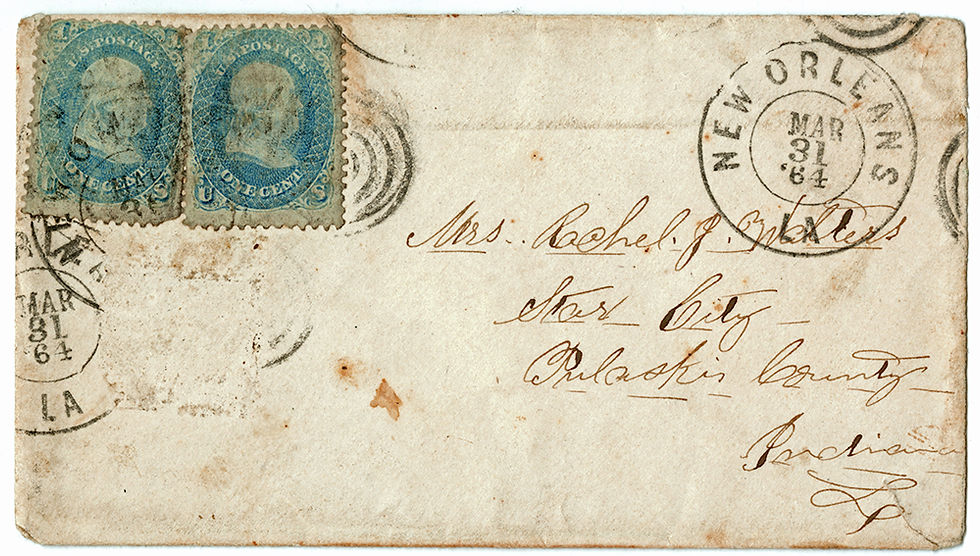 U.S. POSTAGE
ONE CENT
U.S. POSTAGE
ONE CENT
NEW ORLEANS
MAR
31
'64
LA
MAR
31
64
LA
Mrs. Rachel. J.
Star City
Pulaski County
Indiana